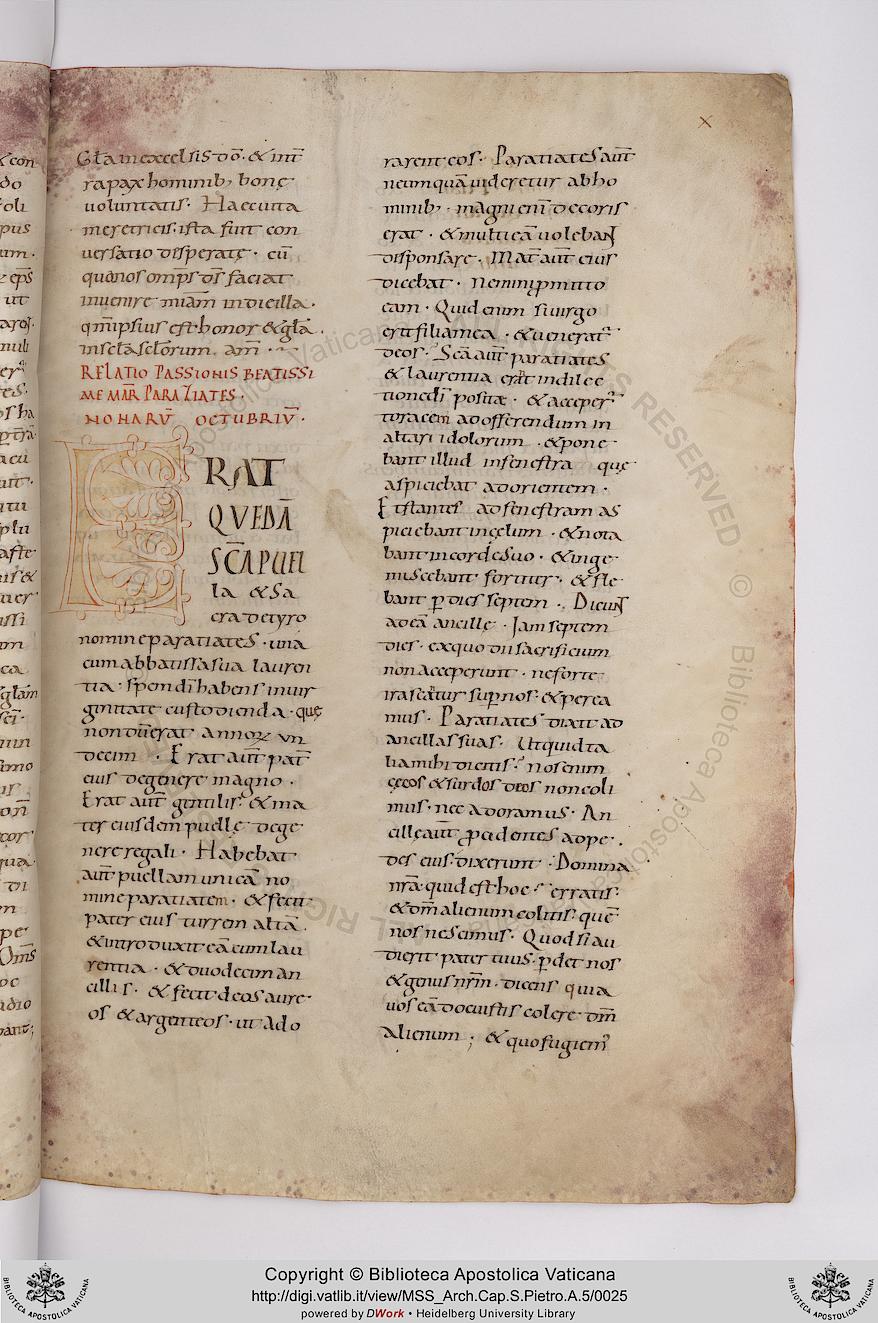 Gl̄a in excelsis dō · & int̄
ra pax hominib; bonę
uoluntatis · Haec uita
meretricis · ista fuit con
uersatio disperate · cū
qua nos omp̄s d̄s faciat
inuenire miā in die illa ·
qm̄ ipsius est honor & gl̄a
in scl̄a scl̄orum am̄ ·
RELATIO PASSIONIS BEATISSI
ME MAR̄ PARATIATES ·
NONARŪ OCTUBRIŪ ·
ERAT
QUEDĀ
SC̄A PUEL
la & sa
cra de tyro
nomine paratiates · una
cum abbatissa sua lauren
tia · spendī habens in uir
ginitate custodienda · que
non dū erat annoꝝ un
decim · Erat aut̄ pat̄
eius de genere magno ·
Erat aut̄ gentilis · & ma
ter eiusdem puellę de ge
nere regali · Habebat
aut̄ puellam unicā no
mine paratiatem · & fecit
pater eius turrem altā ·
& introduxit eā cum lau
rentia · & duodecim an
cillis · & fecit deos aure
os & argenteos · ut ado
rarent eos · Paratiates aut̄
neumquā uideretur ab ho
minib; · magni eni̅ decoris
erat · & multi eā uoleban̄
disponsare · Mat̄ aut̄ eius
dicebat · Nemini p̱mitto
eam · Quid enim si uirgo
erit filia mea · & uenerat̄
deos · Sc̄a aut̄ paratiates
& laurentia erat in dilec
tione dī posita · & acceper̄
toracem ad offerendum in
altari idolorum · & pone
bant illud in fenestra que
aspiciebat ad orientem ·
Et stantes ad fenestram as
piciebant in celum · & nota
bant in corde suo · & inge
miscebant fortiter · & fle
bant p̱ dies septem · Dicun̄
ad eā ancille · Iam septem
dies · ex quo dii sacrificium
non acceperunt · ne forte
irascatur sup̱ nos · & perea
mus · Paratiates dixit ad
ancillas suas · Ut quid ta
lia mihi dicitis · nos enim
cęcos & surdos deos non coli
mus · nec adoramus · An
cille aut̄ p̱cidentes ad pe
des eius dixerunt · Domina
nr̄a quid est hoc · erratis ·
& dm̄ alienum colitis quē
nos nescimus · Quod si au
dierit pater tuus · p̱det nos
& genus nr̄m · dicens quia
uos eā docuistis colere dm̄
alienum ; & quo fugiem̄
Copyright © Biblioteca Apostolica Vaticana
http://digi.vatlib.it/view/MSS_Arch.Cap.S.Pietro.A.5/0025
powered by DWork • Heidelberg University Library